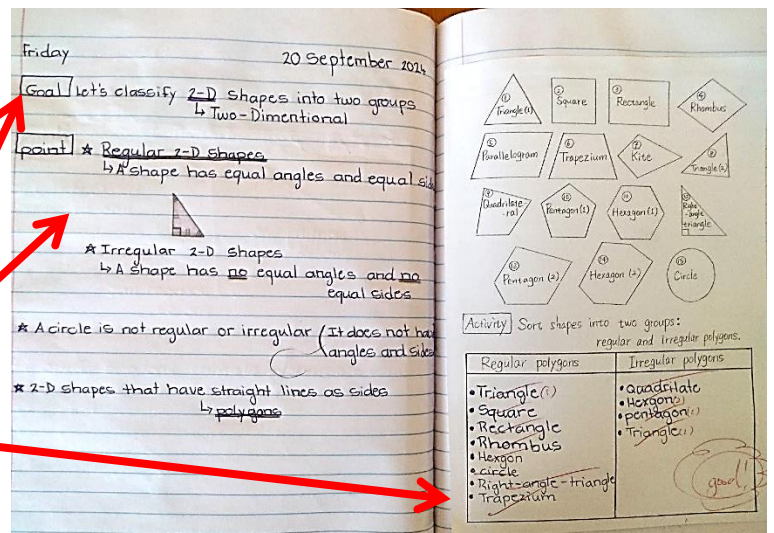 Friday
20 September 2024
Goal Let's classify 2-D shapes into two groups
↳ Two-Dimentional
point ★ Regular 2-D shapes
↳ A shape has equal angles and equal sid
★ Irregular 2-D shapes
↳ A shape has no equal angles and no
equal sides
★ A circle is not regular or irregular (It does not ha
angles and sides
★ 2-D shapes that have straight lines as sides
↳ polygons
① Triangle (1)
② Square
③ Rectangle
④ Rhombus
⑤ Parallelogram
⑥ Trapezium
⑦ Kite
⑧ Triangle (2)
⑨ Quadrilate
-ral
⑩ Pentagon (1)
⑪ Hexagon (1)
⑫ Right
-angle
triangle
⑬ Pentagon (2)
⑭ Hexagon (2)
⑮ Circle
Activity Sort shapes into two groups:
regular and irregular polygons.
Regular polygons
• Triangle (1)
• Square
• Rectangle
• Rhombus
• Hexgon
• circle
• Right-angle-triangle
• Trapezium
Irregular polygons
• Quadrilate
• Hexgon
• pentagon (1)
• Triangle (1)
good!